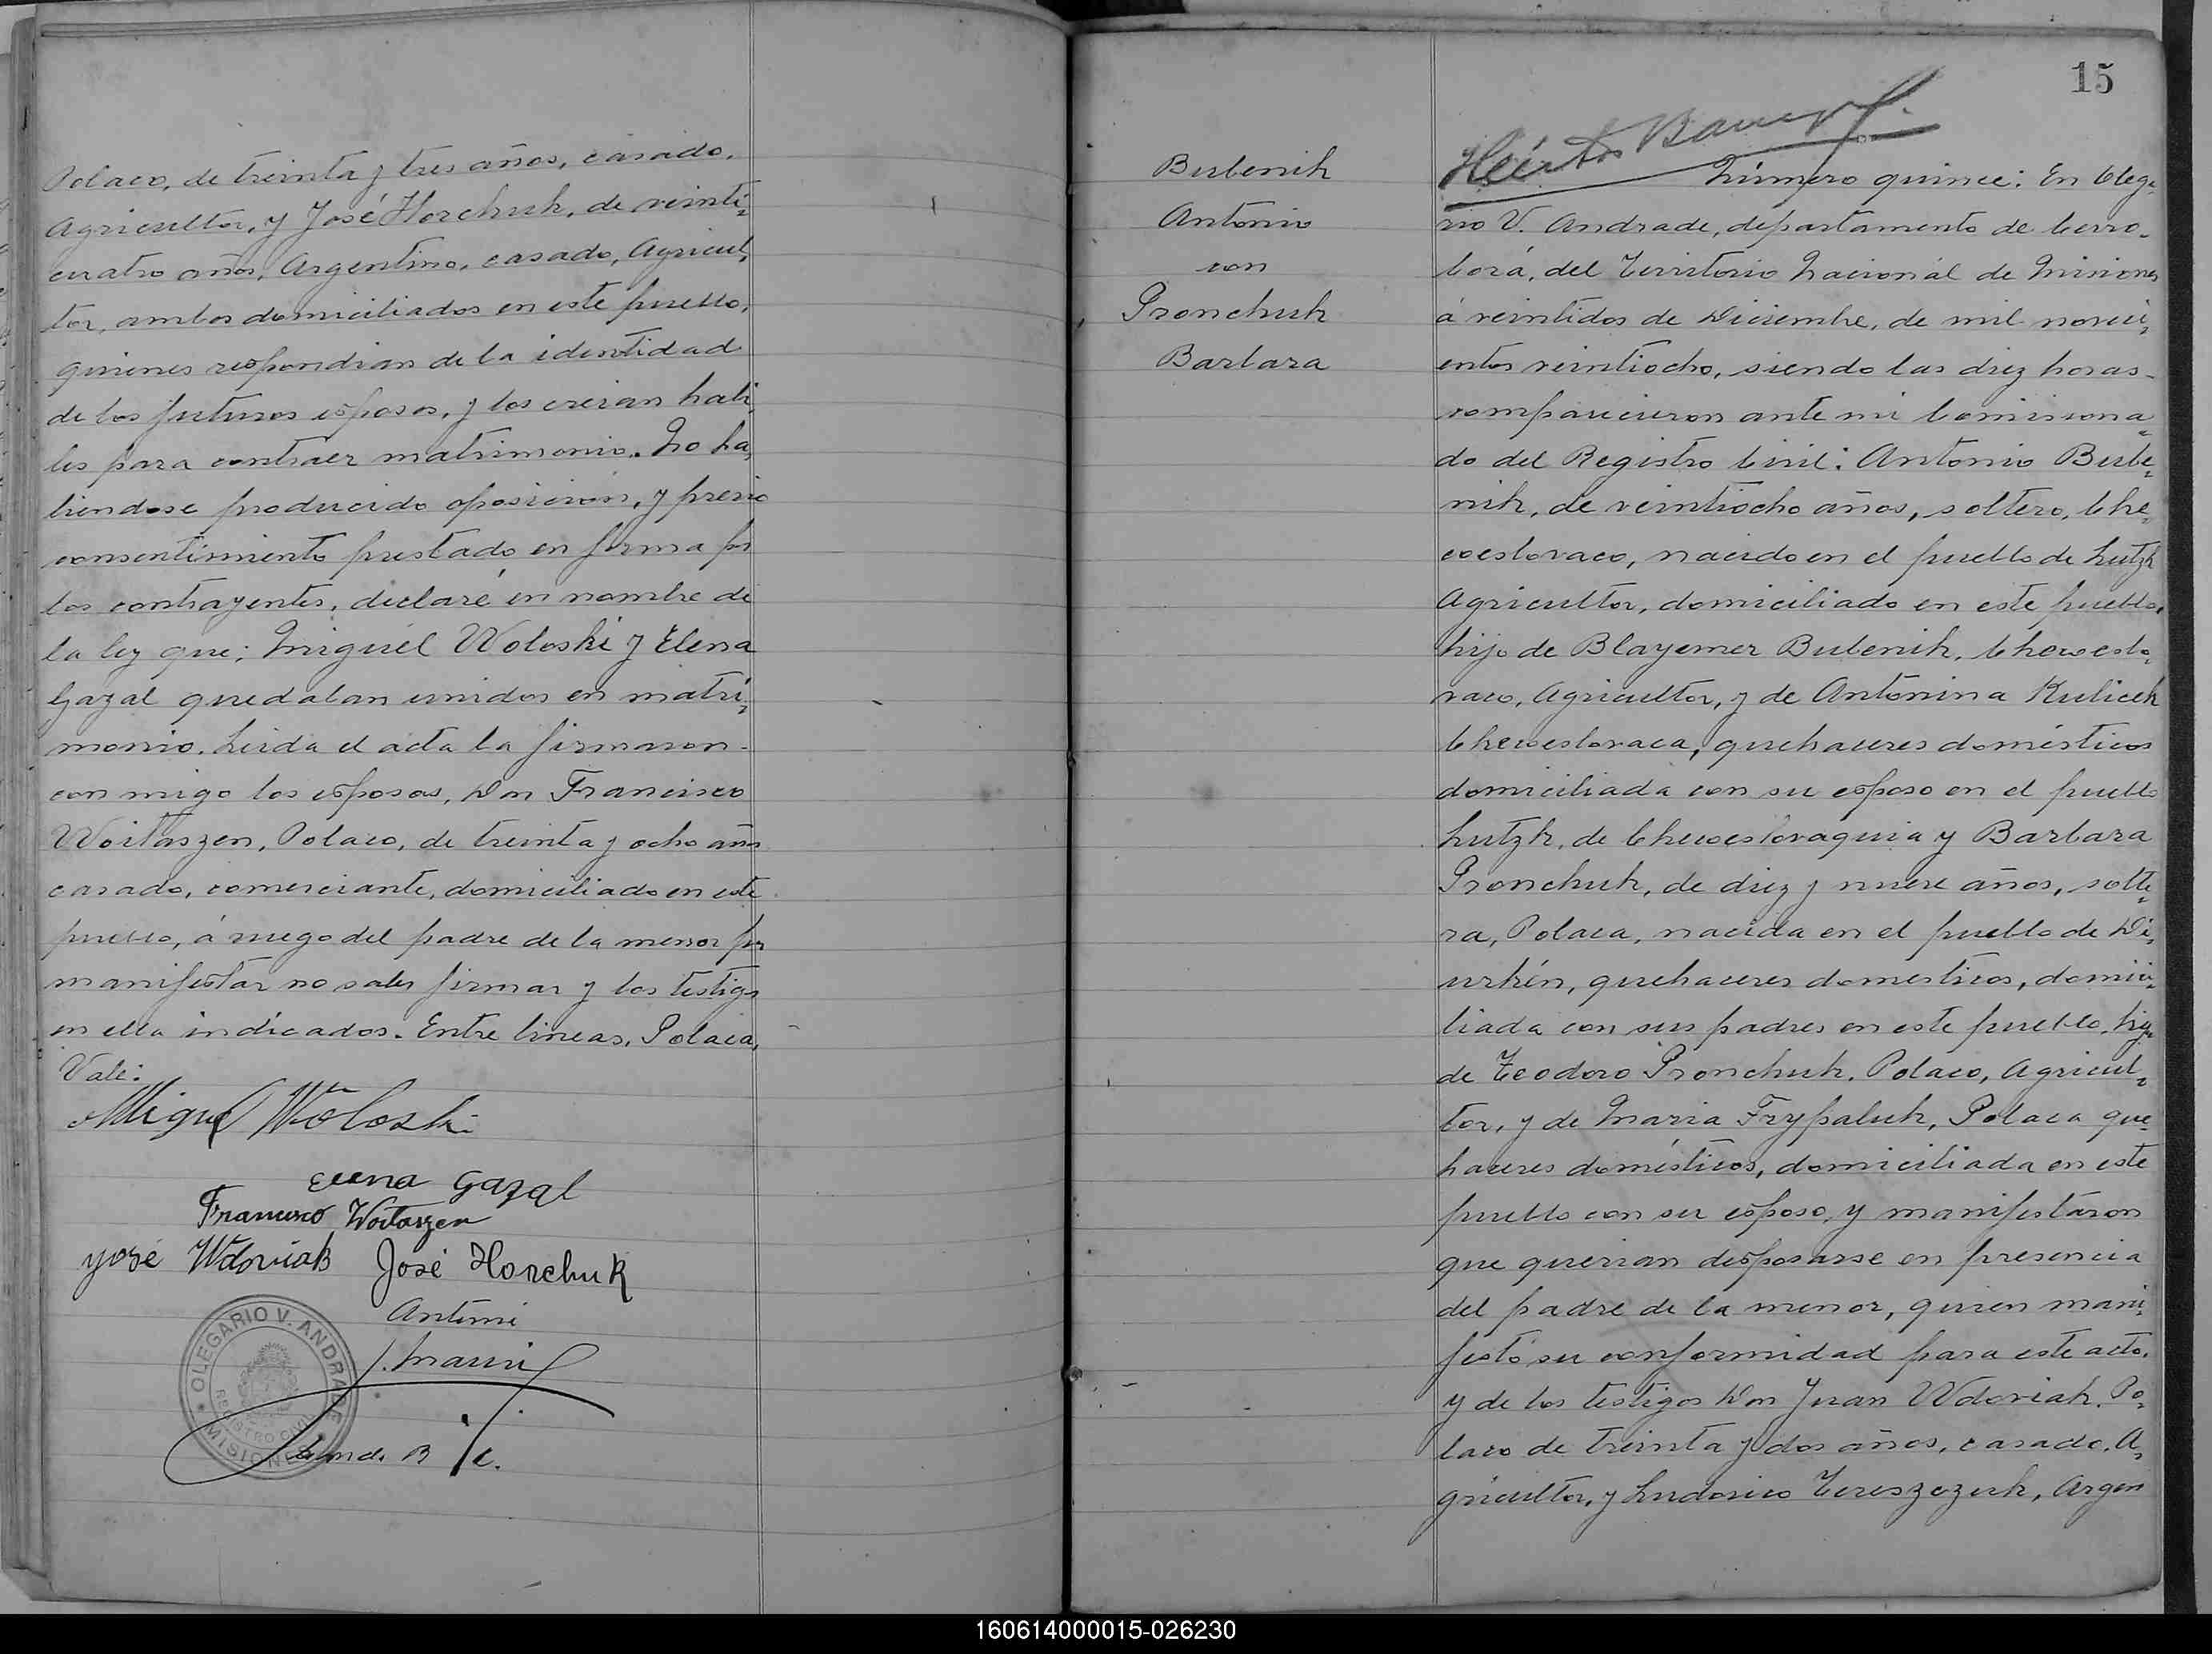 Polaco, de treinta y tres años, casado,
Agricultor, y José Horchuk, de veinti-
cuatro años, Argentino, casado, Agricul-
tor, ambos domiciliados en este pueblo,
quienes respondian de la identidad
de los futuros esposos, y los creian habi-
les para contraer matrimonio. No ha-
biendose producido oposición, y previo
consentimiento prestado en forma por
los contrayentes, declaré en nombre de
la ley que; Miguél Woloski y Elena
Gazal quedaban unidos en matri-
monio. Leida el acta la firmaron
con migo los esposos, Don Francisco
Woitaszen, Polaco, de treinta y ocho años
casado, comerciante, domiciliado en este
pueblo, á ruego del padre de la menor por
manifestar no saber firmar y los testigos
en ella indicados. Entre lineas, Polaca,
Vale:
Miguel Woloski
Elena Gazal
Francisco Woitaszen
José Wdoviak José Horchuk
Antemi
J. Marin
OLEGARIO V. ANDRADE
REGISTRO CIVIL
MISIONES
15
Bubenik
Antonio
con
Pronchuk
Barbara
Número quince: En Olega-
rio V. Andrade, departamento de Cerro-
Corá, del Territorio Nacionál de Misiones
á veintidos de Diciembre, de mil noveci-
entos veintiocho, siendo las diez horas
comparecieron ante mi Comisiona-
do del Registro Civil: Antonio Bube-
nik, de veintiocho años, soltero, Che-
coeslovaco, nacido en el pueblo de Lutzk
Agricultor, domiciliado en este pueblo,
hijo de Blayemer Bubenik, Checoeslo-
vaco, Agricultor, y de Antonina Kulicek
Checoeslovaca, quehaceres domésticos
domiciliada con su esposo en el pueblo
Lutzk, de Checoeslovaquia y Barbara
Pronchuk, de diez y nueve años, solte-
ra, Polaca, nacida en el pueblo de Di-
urkén, quehaceres domesticos, domici-
liada con sus padres en este pueblo, hija
de Teodoro Pronchuk, Polaco, Agricul-
tor, y de Maria Frypaluk, Polaca que-
haceres domésticos, domiciliada en este
pueblo con su esposo, y manifestáron
que querian desposarse en presencia
del padre de la menor, quien mani-
festó su conformidad para este acto,
y de los testigos Don Juan Wdoviak, Po-
laco de treinta y dos años, casado, A-
gricultor, y Ludovico Tereszczuk, Argen
160614000015-026230